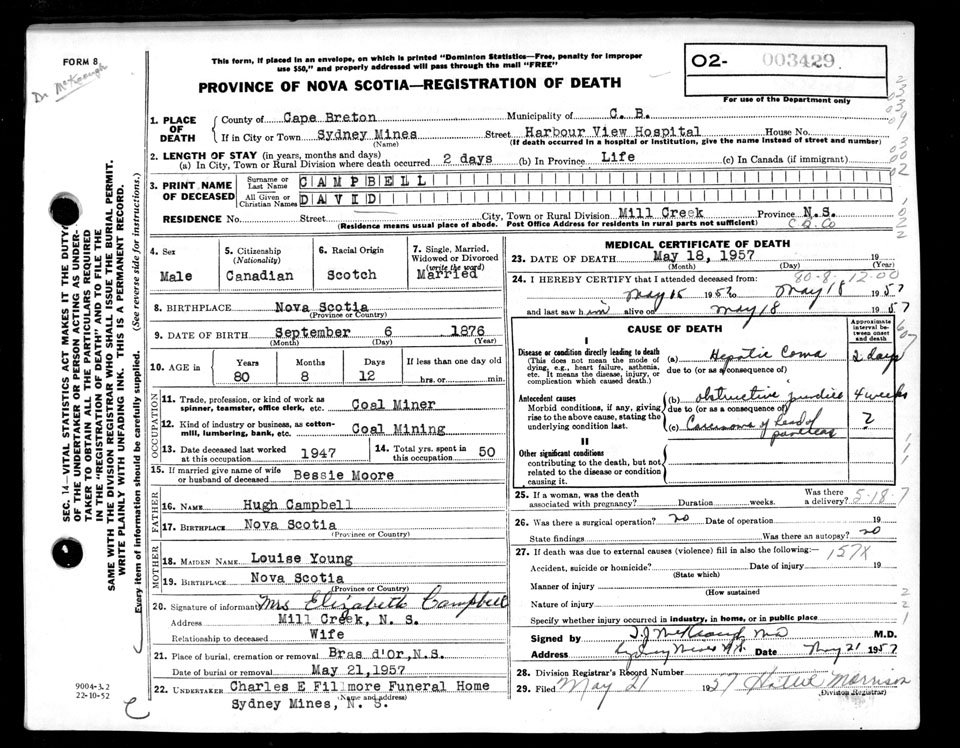 FORM 8
Dr McKeough
This form, if placed in an envelope, on which is printed "Dominion Statistics—Free, penalty for improper
use $50," and properly addressed will pass through the mail "FREE"
PROVINCE OF NOVA SCOTIA—REGISTRATION OF DEATH
O2- 003429
For use of the Department only
1. PLACE OF DEATH
County of Cape Breton Municipality of C. B.
If in City or Town Sydney Mines Street Harbour View Hospital House No.
(Name) (If death occurred in a hospital or institution, give the name instead of street and number)
2. LENGTH OF STAY (in years, months and days)
(a) In City, Town or Rural Division where death occurred 2 days (b) In Province Life (c) In Canada (if immigrant)
3. PRINT NAME OF DECEASED
Surname or Last Name CAMPBELL
All Given or Christian Names DAVID
RESIDENCE No. Street City, Town or Rural Division Mill Creek Province N.S.
(Residence means usual place of abode. Post Office Address for residents in rural parts not sufficient) C.B.Co
4. Sex Male
5. Citizenship (Nationality) Canadian
6. Racial Origin Scotch
7. Single, Married, Widowed or Divorced (write the word) Married
8. BIRTHPLACE Nova Scotia
(Province or Country)
9. DATE OF BIRTH September 6 1876
(Month) (Day) (Year)
10. AGE in Years 80 Months 8 Days 12 If less than one day old hrs. or min.
OCCUPATION
11. Trade, profession, or kind of work as spinner, teamster, office clerk, etc. Coal Miner
12. Kind of industry or business, as cotton-mill, lumbering, bank, etc. Coal Mining
13. Date deceased last worked at this occupation 1947
14. Total yrs. spent in this occupation 50
15. If married give name of wife or husband of deceased Bessie Moore
FATHER
16. NAME Hugh Campbell
17. BIRTHPLACE Nova Scotia
(Province or Country)
MOTHER
18. MAIDEN NAME Louise Young
19. BIRTHPLACE Nova Scotia
(Province or Country)
20. Signature of informant Mrs Elizabeth Campbell
Address Mill Creek, N. S.
Relationship to deceased Wife
21. Place of burial, cremation or removal Bras d'Or,N.S.
Date of burial or removal May 21,1957
22. UNDERTAKER Charles E Fillmore Funeral Home
(Name and address)
Sydney Mines, N. S.
MEDICAL CERTIFICATE OF DEATH
23. DATE OF DEATH May 18, 1957 19
(Month) (Day) (Year)
80-8-12-00
24. I HEREBY CERTIFY that I attended deceased from:
May 16 1957 to May 18 1957
and last saw him alive on May 18 1957
CAUSE OF DEATH
Approximate interval between onset and death
I
Disease or condition directly leading to death (a) Hepatic Coma 2 days
(This does not mean the mode of dying, e.g., heart failure, asthenia, etc. It means the disease, injury, or complication which caused death.)
due to (or as consequence of)
Antecedent causes (b) obstructive jaundice 4 weeks
Morbid conditions, if any, giving rise to the above cause, stating the underlying condition last.
due to (or as a consequence of)
(c) Carcinoma of head of pancreas ?
II
Other significant conditions
contributing to the death, but not related to the disease or condition causing it.
25. If a woman, was the death associated with pregnancy? Duration weeks. Was there a delivery? 5-18-7
26. Was there a surgical operation? no Date of operation 19
State findings Was there an autopsy? no
27. If death was due to external causes (violence) fill in also the following:— 157X
Accident, suicide or homicide? Date of injury 19
(State which)
Manner of injury
(How sustained
Nature of injury
Specify whether injury occurred in industry, in home, or in public place
Signed by J.J. McKeough MD M.D.
Address Sydney Mines N.S. Date May 21 1957
28. Division Registrar's Record Number
29. Filed May 21 1957 Hattie Morrison
(Division Registrar)
SEC. 14—VITAL STATISTICS ACT MAKES IT THE DUTY
OF THE UNDERTAKER OR PERSON ACTING AS UNDER-
TAKER TO OBTAIN ALL THE PARTICULARS REQUIRED
IN THE "REGISTRATION OF DEATH" AND TO FILE THE
SAME WITH THE DIVISION REGISTRAR WHO SHALL ISSUE THE BURIAL PERMIT.
WRITE PLAINLY WITH UNFADING INK. THIS IS A PERMANENT RECORD.
Every item of information should be carefully supplied. (See reverse side for instructions.)
9004-3.2
22-10-52